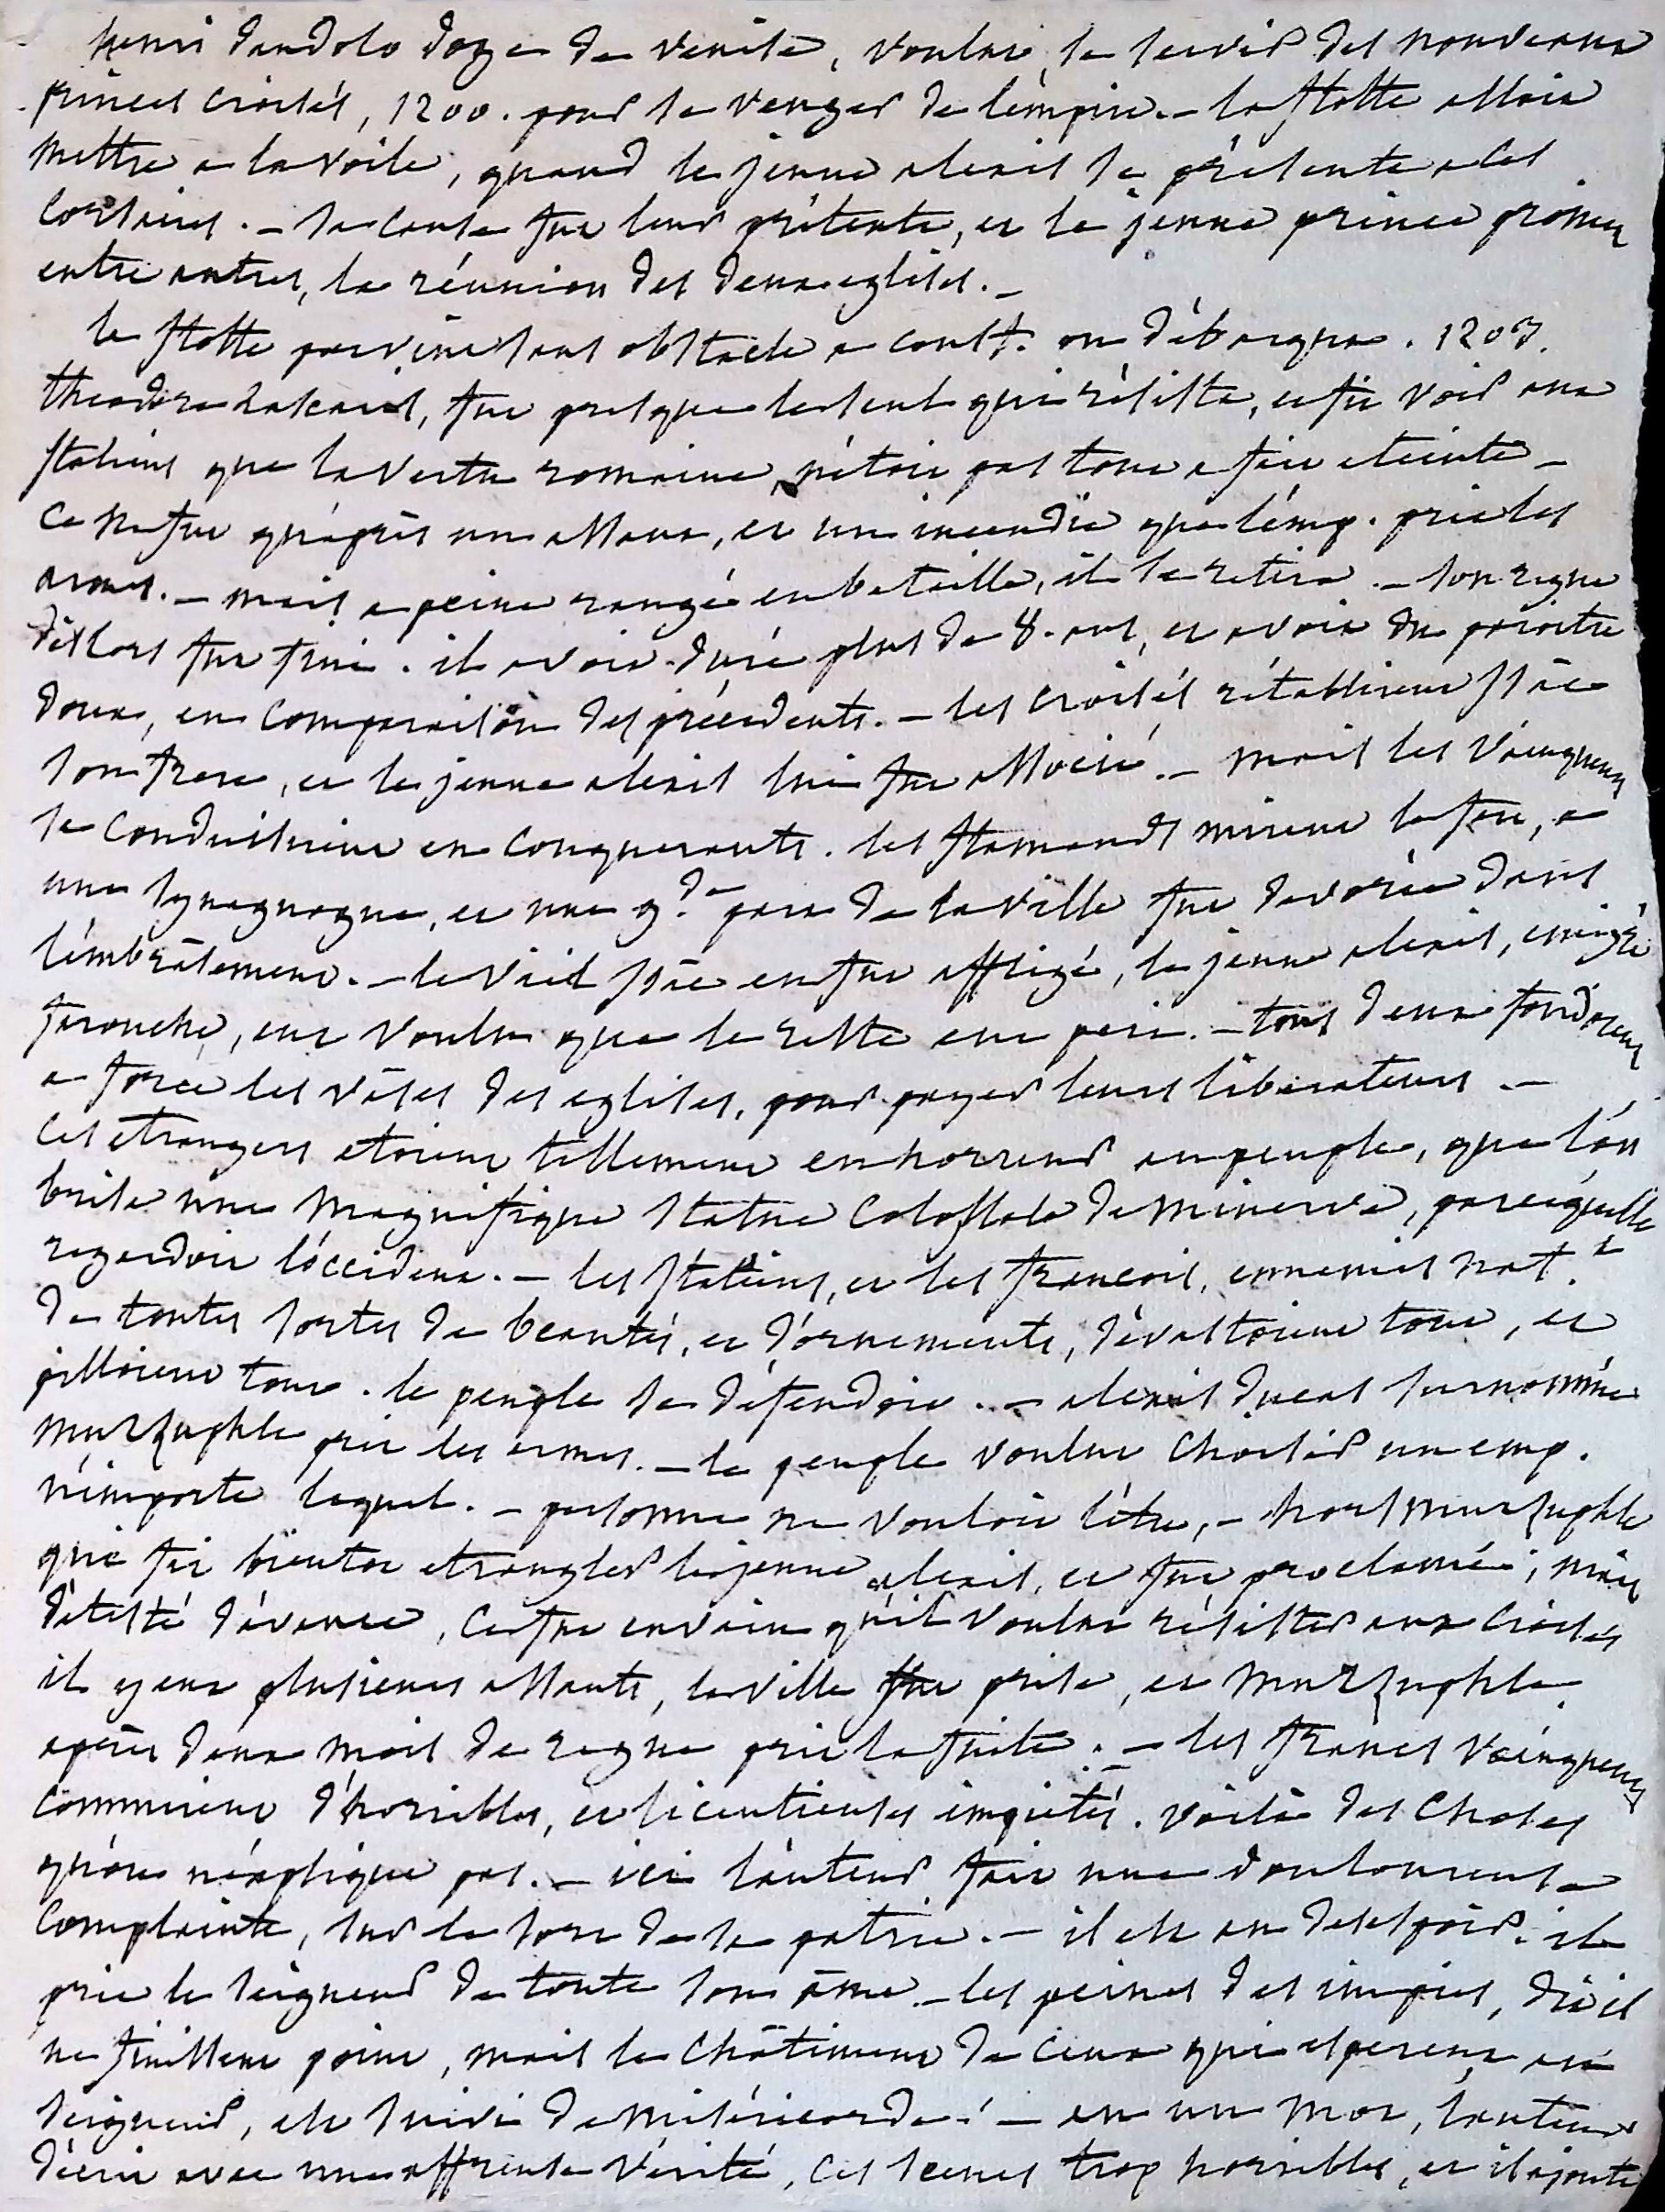 henri dandolo doge de venise, voulut se servir des nouveaux
princes croisés, 1200. pour se venger de l'empire. – la flotte alloit
mettre a la voile, quand le jeune alexis se présenta a ces
corsaires. – sa cause fut leur prétexte, et le jeune prince promit
entre autres, la réunion des deux eglises. –
la flotte parvint sans obstacle a const. on débarqua. 1203.
theodore lascaris, fut presque le seul qui résista, et fit voir aux
italiens que la vertu romaine n'étoit pas tout a fait eteinte –
ce ne fut qu'après un assaut, et un incendie que l'emp. prit les
armes. – mais a peine rangé en bataille, il se retira. – son regne
dès lors fut fini. il avoit duré plus de 8. ans, et avoit du paroitre
doux, en comparaison des précédents. – les croisés rétablirent isäc
son frere, et le jeune alexis lui fut associé. – mais les vainqueurs
se conduisirent en conquerants. les flamands mirent le feu, a
une synagogue, et une gde part de la ville fut devorée dans
l'embrâsement. – le vieil isäc en fut affligé, le jeune alexis, emigré
farouche, eut voulu que le reste eut peri. – tous deux fondirent
a force les vâses des eglises, pour payer leurs libérateurs. –
ces etrangers etoient tellement en horreur au peuple, que l'on
brisa une magnifique statue colossale de minerve, parcequ'elle
regardoit l'occident. – les italiens, et les francois, ennemis nat.ls
de toutes sortes de beautés, et d'ornements, dévastoient tout, et
pilloient tout. le peuple se défendoit. – alexis ducas surnommé
murzuphle prit les armes. – le peuple voulut choisir un emp.
n'importe lequel. – personne ne vouloit l'être, – hors murzuphle
qui fit bientot etrangler le jeune alexis, et fut proclamé; mais
détesté d'avance, ce fut en vain qu'il voulut résister aux croisés
il y eut plusieurs assauts, la ville fut prise, et murzuphle
après deux mois de regne prit la fuite. – les francs vainqueurs
commirent d'horribles, et licentieuses impiétés. voilà des choses
qu'on n'explique pas. – ici l'auteur fait une douloureuse
complainte, sur le sort de sa patrie. – il est au desespoir. il
prie le seigneur de toute son âme. – les peines des impies, dit il
ne finissent point, mais le châtiment de ceux qui esperent au
seigneur, est suivi de miséricorde! – en un mot, l'auteur
décrit avec une affreuse vérité, ces scenes trop horribles, et il ajoute